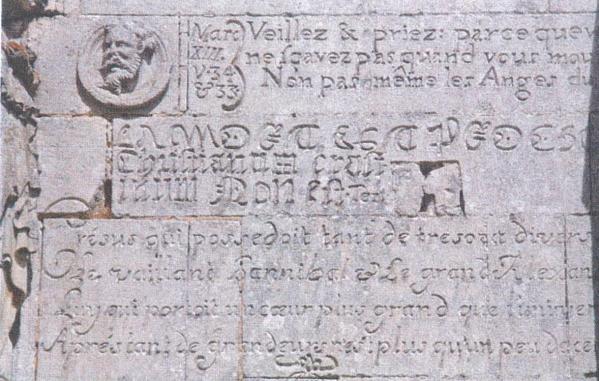 Marc
XIII
V·34
& 33
Veillez & priez: parce que v
ne sçavez pas quand vous mou
Non pas même les Anges du
LA MORT EST PROCH
Non est
Crésus qui possedoit tant de tresors divers
Le vaillant Hannibal & Le grand Alexan
Luy qui portoit un cœur plus grand que l'univer
Après tant de grandeurs plus qu'un peu de ce